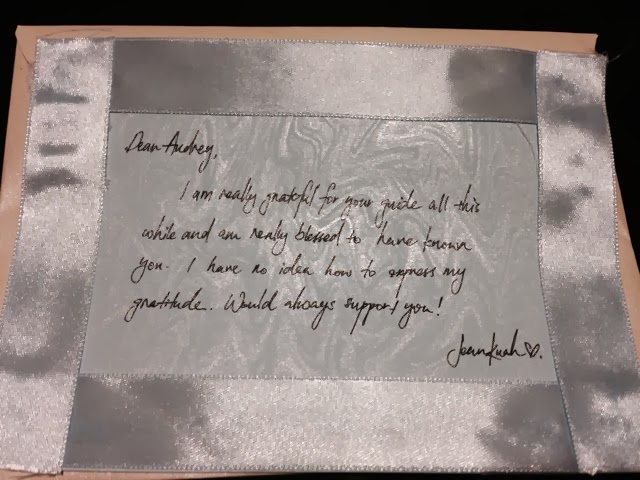 Dear Audrey,
I am really grateful for your guide all this
while and am really blessed to have known
you. I have no idea how to express my
gratitude. Would always support you!
Jean Kuah♡.